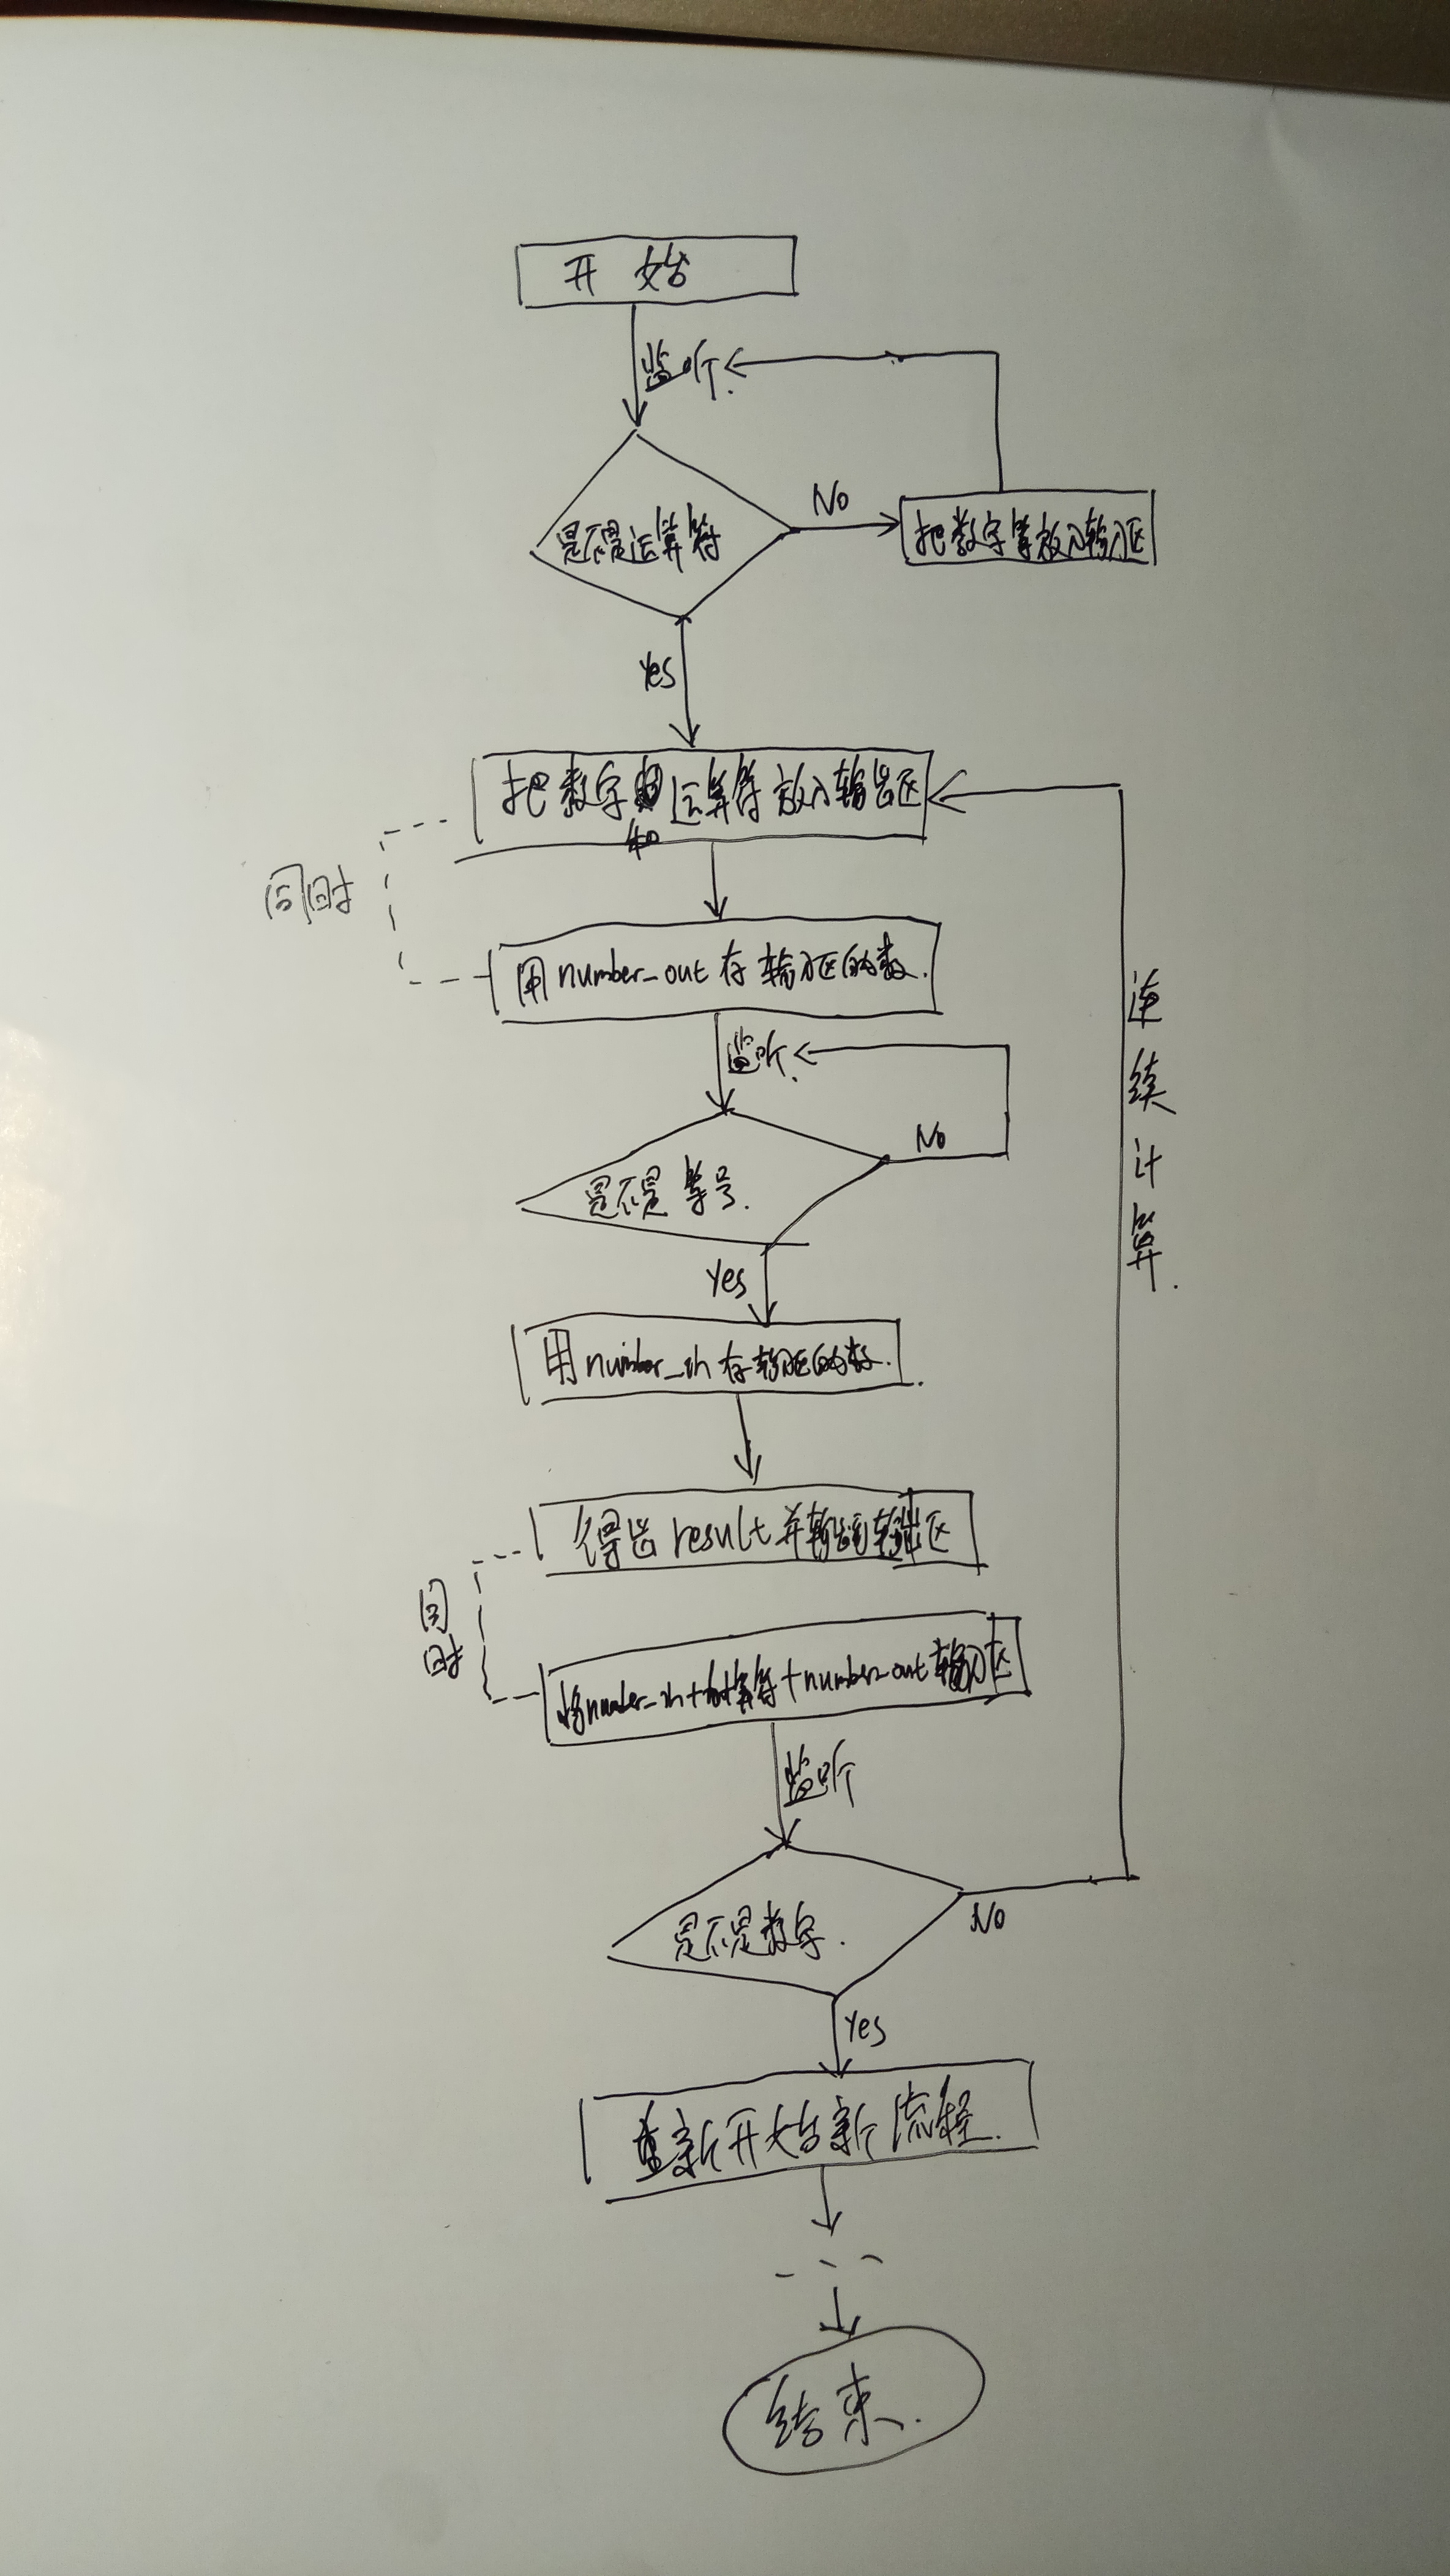 开始
监听.
No
是不是运算符
把数字等放入输入区
Yes
把数字和运算符放入输出区
同时
用number_out存输入区的数.
连续计算.
监听.
No
是不是等号.
Yes
用number_in存输入区的数.
得出result并输出到输出区
同时
将number_in+运算符+number_out输入区
监听
是不是数字.
No
Yes
重新开始新流程.
结束.